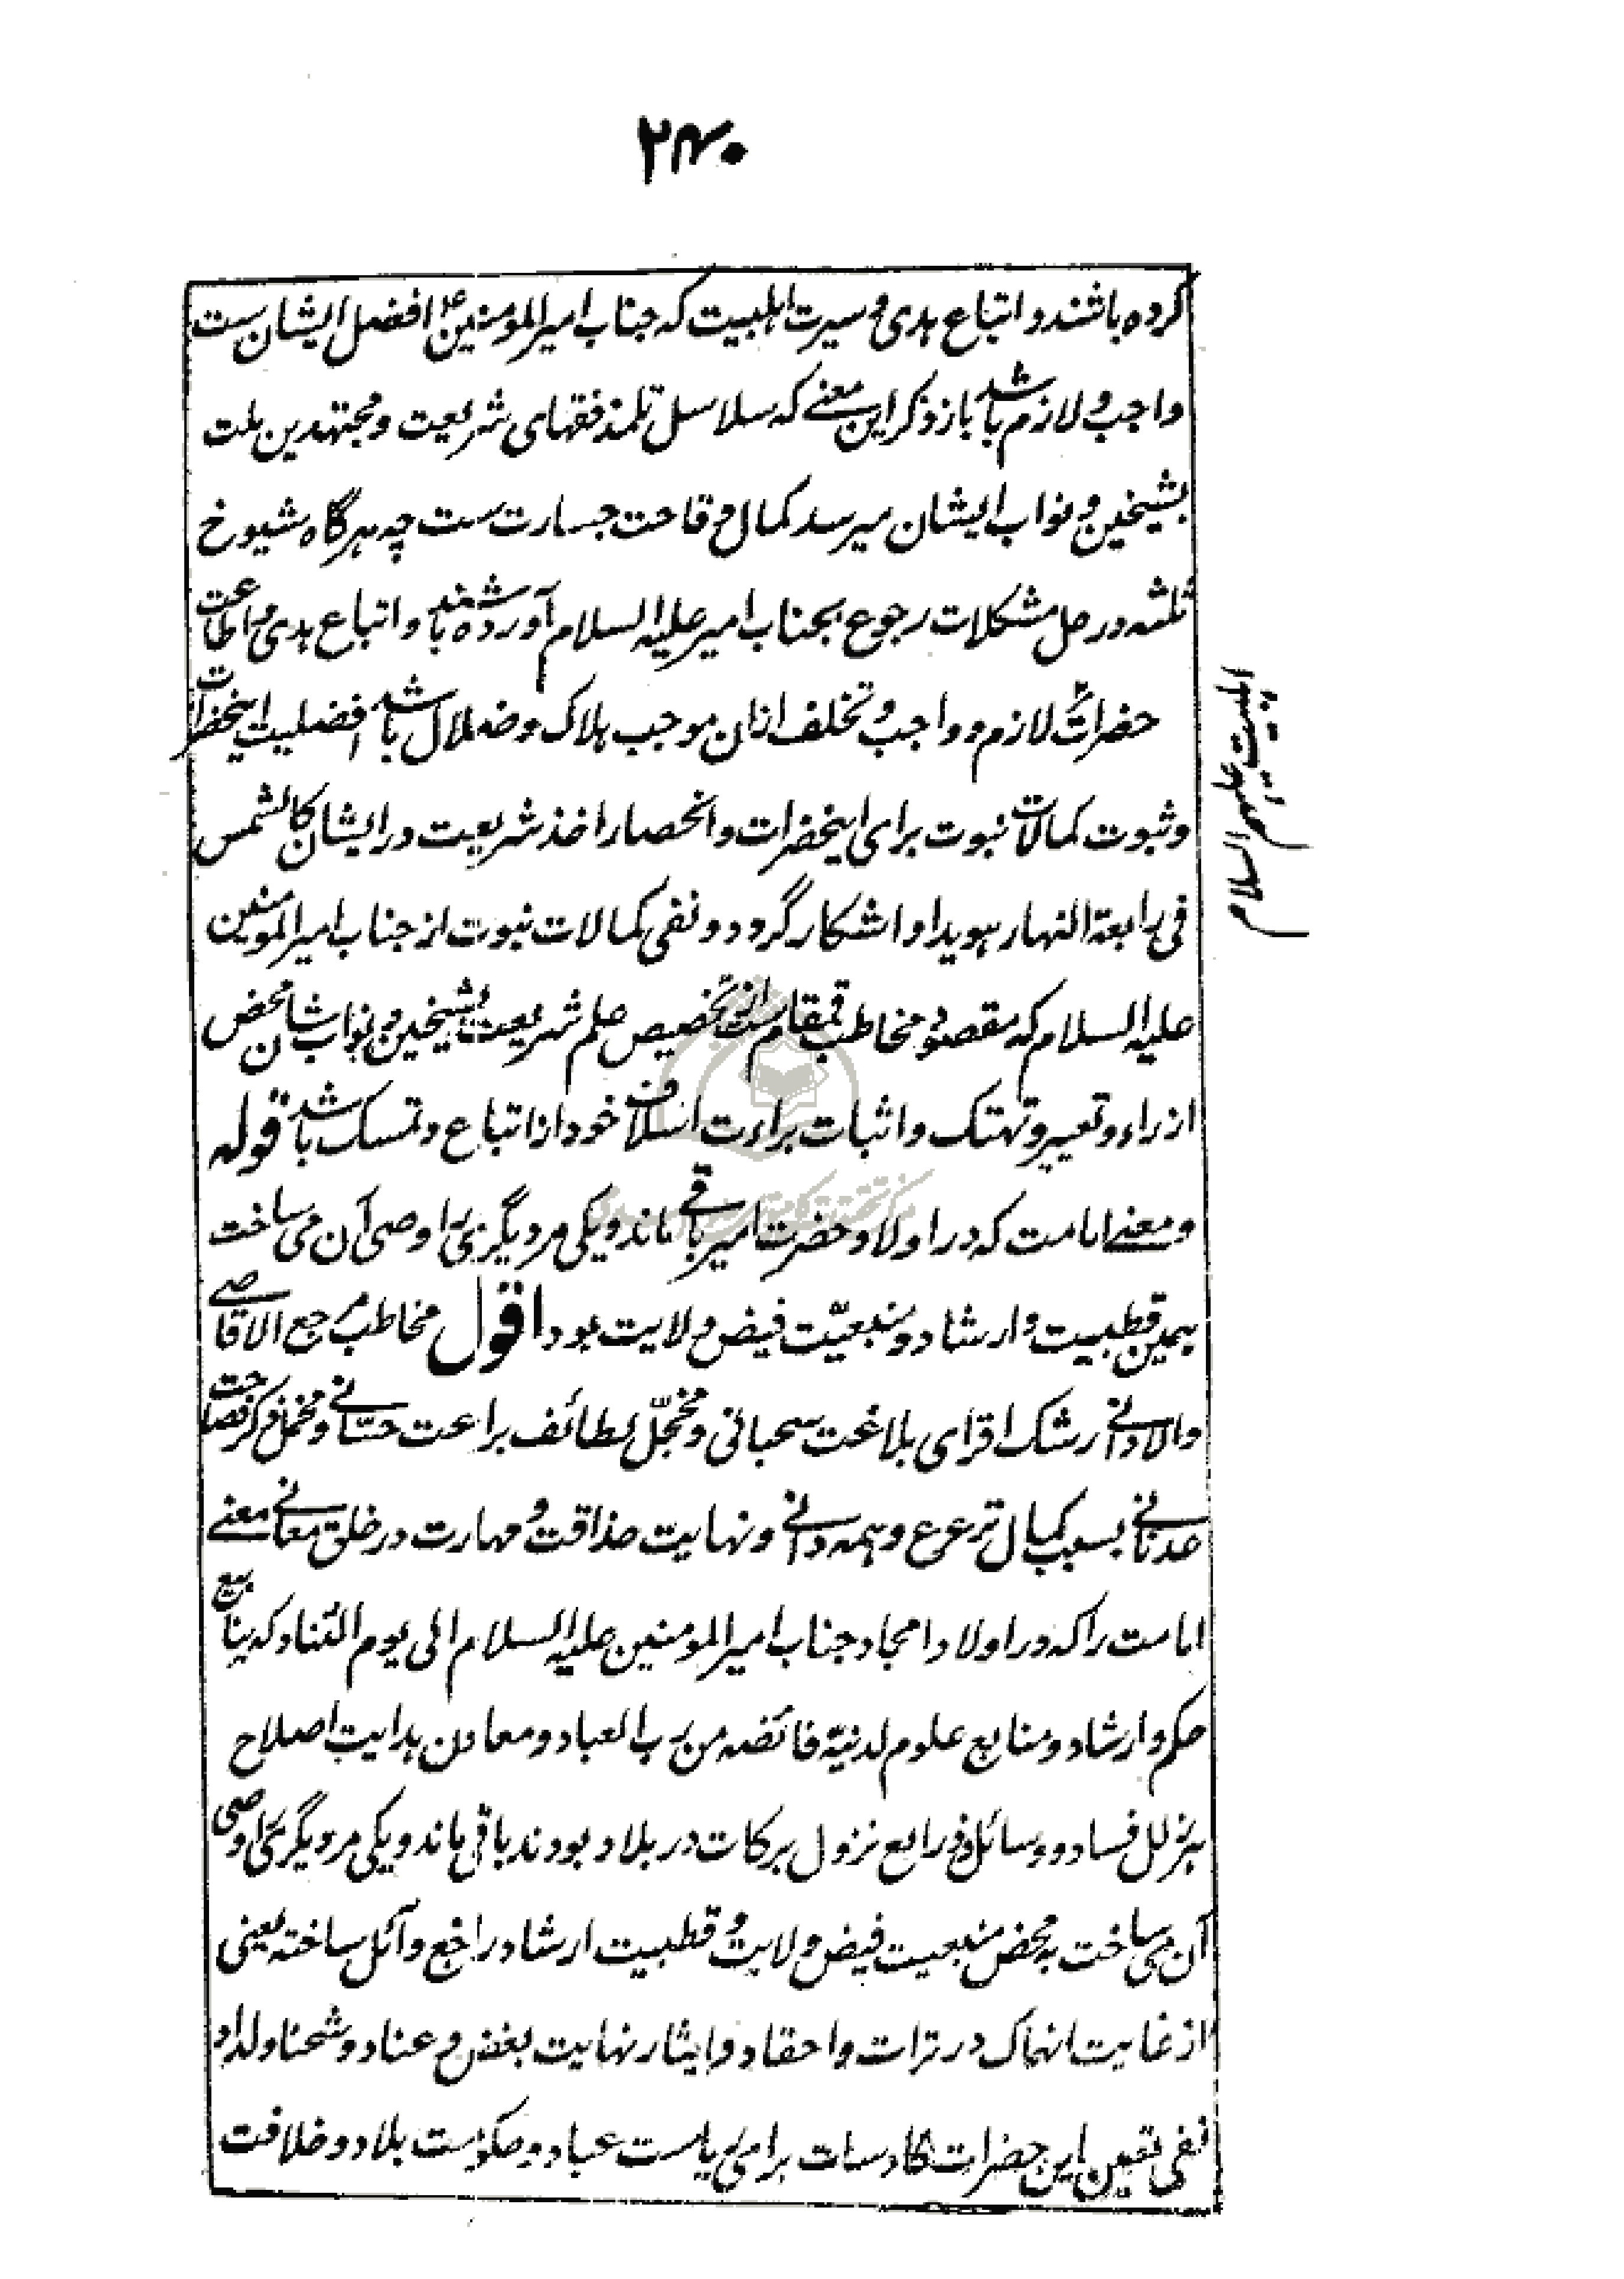 ۲۴۰
کرده باشند و اتباع هدی و سیرت اهلبیت که جناب امیرالمومنین ع افضل ایشان ست
واجب و لازم باشد باز ذکر این معنے که سلاسل تلمذ فقهای شریعت و مجتهدین ملت
بشیخین و نواب ایشان میرسد کمال وقاحت و جسارت ست چه هرگاه شیوخ
ثلثه در حل مشکلات رجوع بجناب امیر علیه السلام آورده باشند و اتباع هدی و اطاعت
حضرات لازم و واجب و تخلف ازان موجب هلاک و ضلال باشد افضلیت اینحضرات
و ثبوت کمالات نبوت برای اینحضرات و انحصار اخذ شریعت در ایشان کالشمس
فی رابعة النهار هویدا و اشکار گردد و نفی کمالات نبوت از جناب امیرالمومنین
علیه السلام که مقصود مخاطب قمقام ست از تخصیص علم شریعت بشیخین و نواب شان محض
ازراء و تعییر و تهتک و اثبات براءت اسلاف خود از اتباع و تمسک باشد قوله
و معنے امامت که در اولاد حضرت امیر باقے ماند و یکی مر دیگری را وصی آن می ساخت
همین قطبیت و ارشاد و منبعیّت فیض ولایت بود اقول مخاطب مرجع الاقاصے
والادانے رشک افزای بلاغت سحبانی و مخجّل لطائف براعت حسّانے و مخمل ذکر فصاحت
عدنانے بسبب کمال ترعرع و همه دانے و نهایت حذاقت و مهارت در خلق معانے معنے
امامت را که در اولاد امجاد جناب امیرالمومنین علیه السلام الی یوم التناد که ینابیع
حکم و ارشاد و منابع علوم لدنیّه فائضه من رب العباد و معادن هدایت اصلاح
هر زلل فساد و وسائل و ذرایع نزول برکات در بلاد بودند باقی ماند و یکی مر دیگری را وصی
آن می ساخت به محض منبعیت فیض ولایت و قطبیت ارشاد راجع و آئل ساخته یعنی
از غایت انهماک در ترات و احقاد و ایثار نهایت بغض و عناد و شحنا و لداد
نفی تعین این حضرات کادسات برای ریاست عباد و حکومت بلاد و خلافت
اهلبیت علیهم السلام